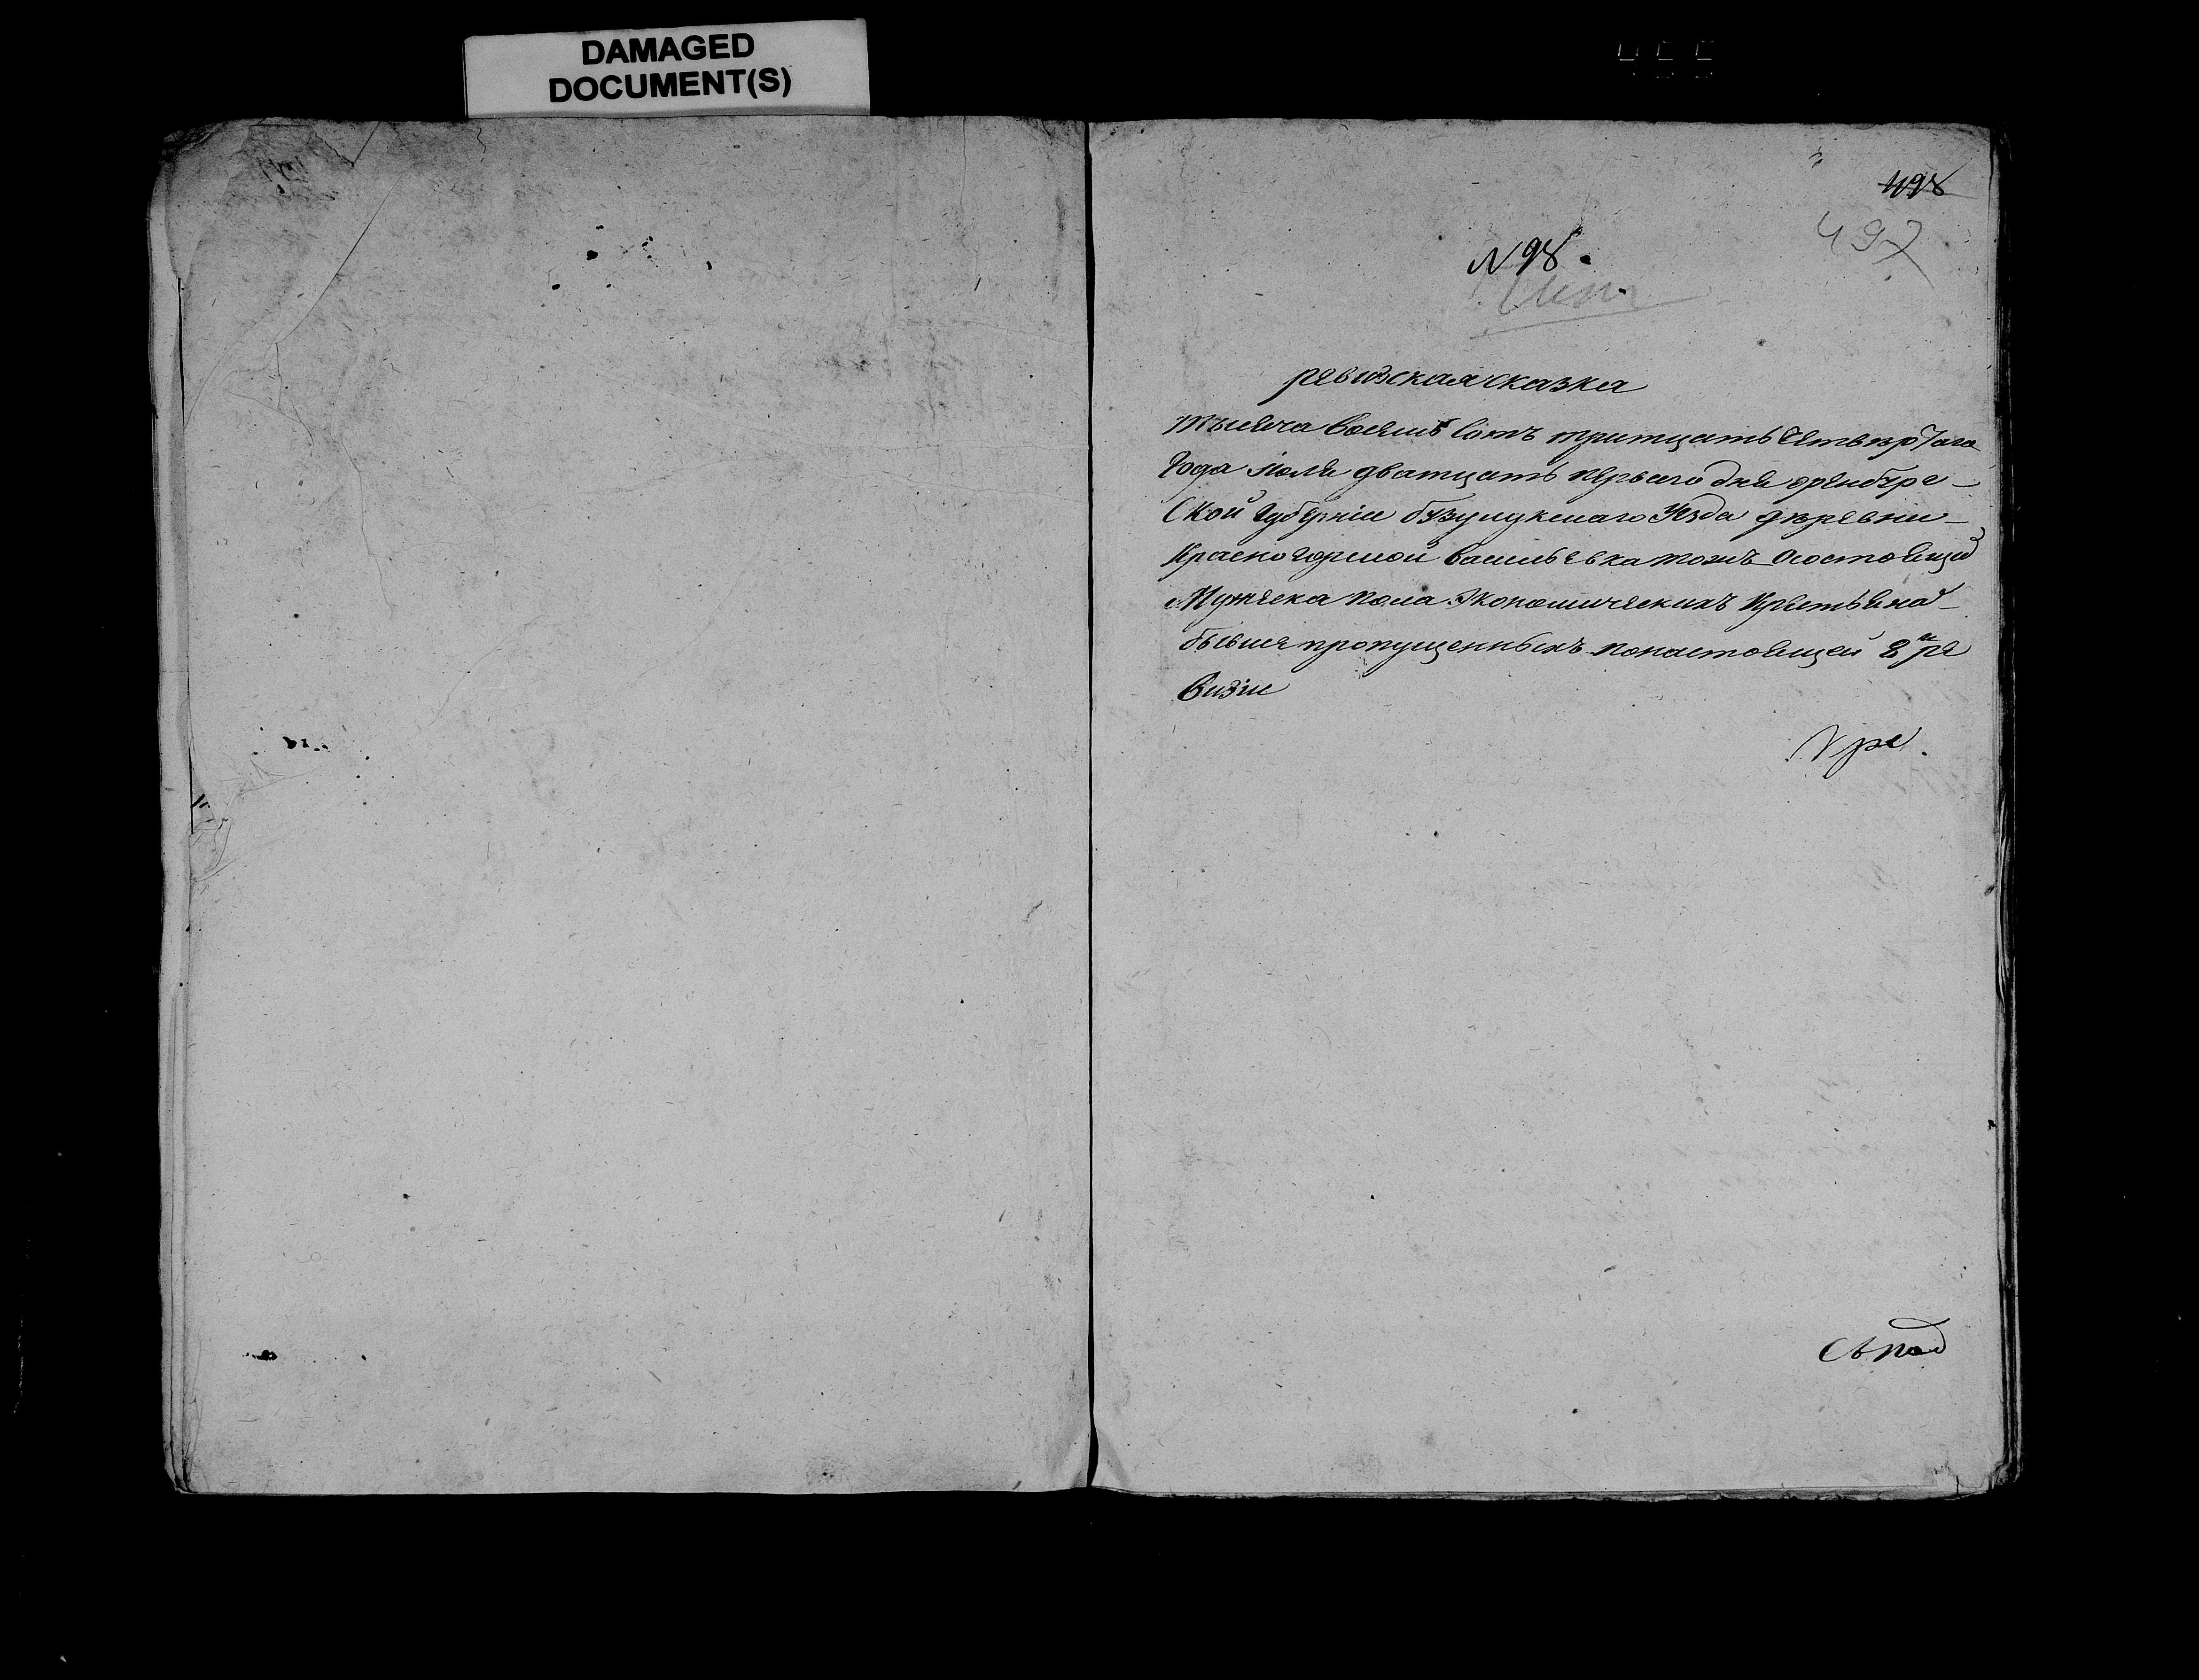 DAMAGED
DOCUMENT(S)
498
497
N 98.
ревизская сказка
тысяча восемь сотъ тритцать четвертаго
года Июля дватцать перваго дня оренбург-
ской губерніи бузулукскаго уезда деревни
Красногорской васильевка тожъ состоящи
Мужеска пола Экономическихъ Крестьяна
бывше пропущенныхъ понастоящей 8й ре
визіи
съ под